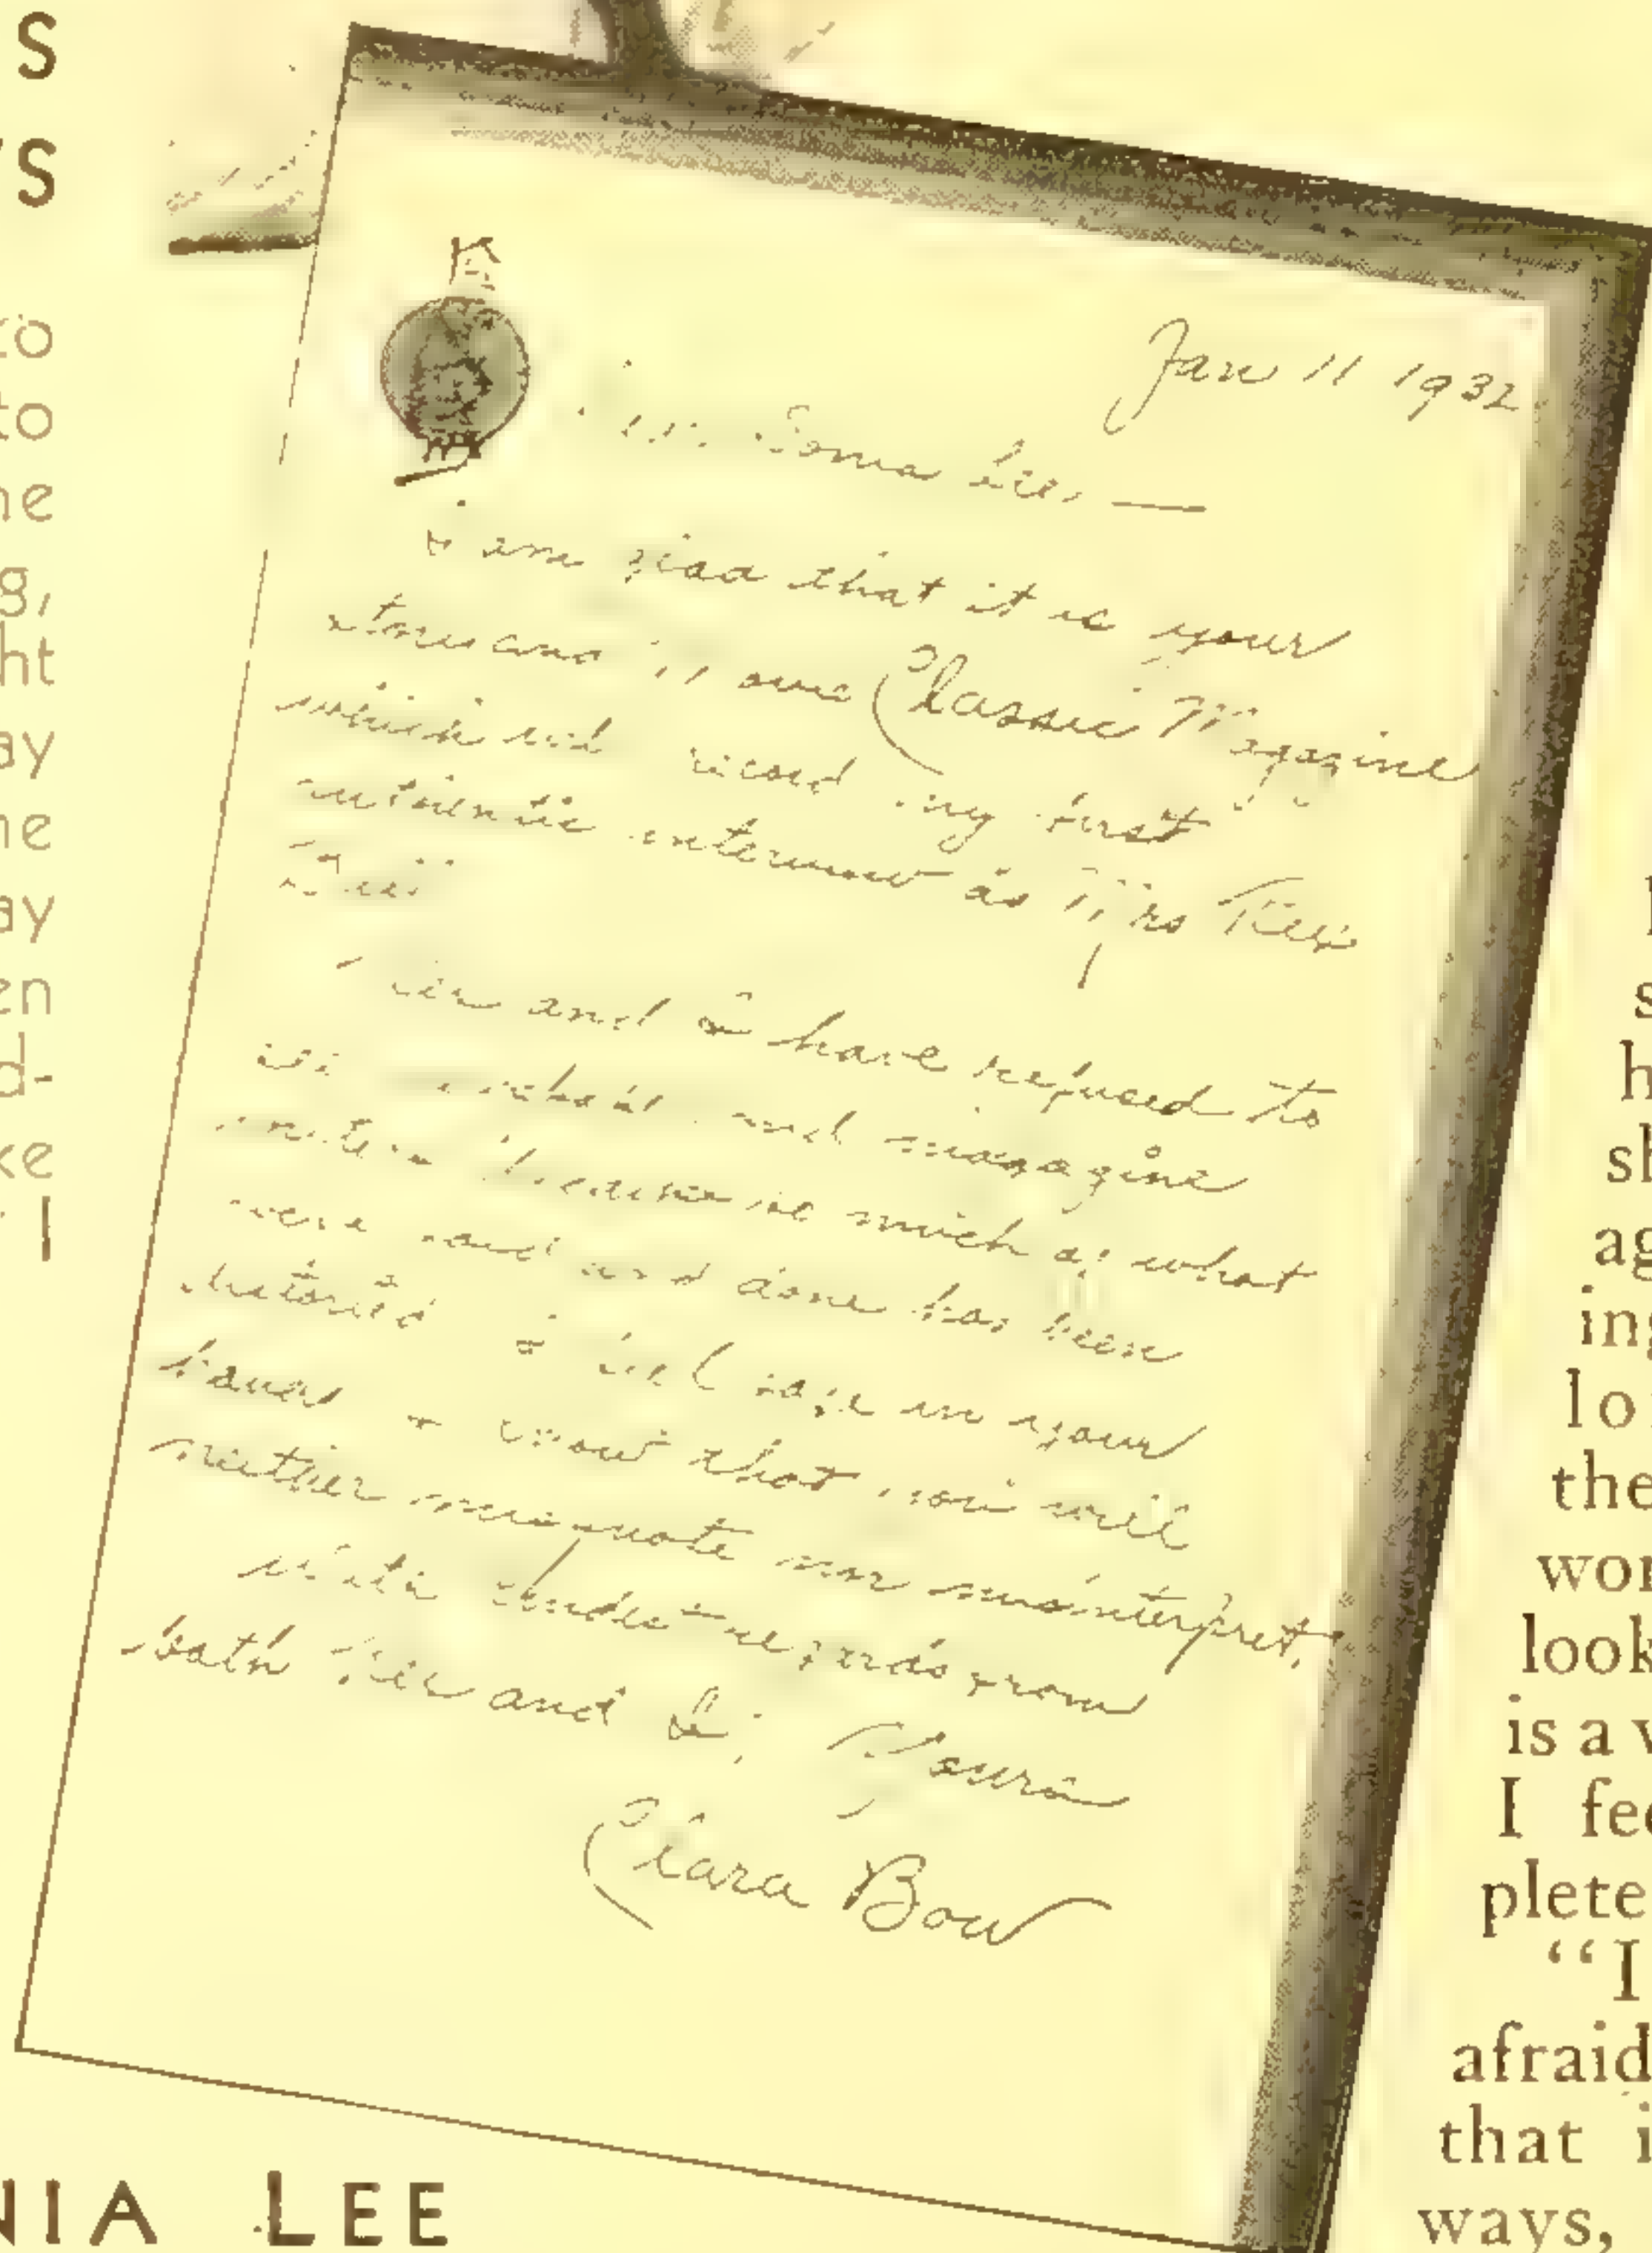 S
S
to
to
ne
g,
ht
ay
ne
ay
en
d-
ke
I
Jan 11 1932
Sonia Lee, —
I am glad that it is your
stories and Classic Magazine
which will record my first
authentic interview as Mrs Rex
Bell
Rex and I have refused to
see and magazine
writers because so much of what
were said and done has been
distorted I feel safe in your
hands I know that you will
neither misquote nor misinterpret.
With kindest regards from
both Rex and I, Yours
Clara Bow
NIA LEE
s
h
sh
ag
ing
lo
the
wor
look
is a v
I fee
plete
“I
afraid
that i
ways,